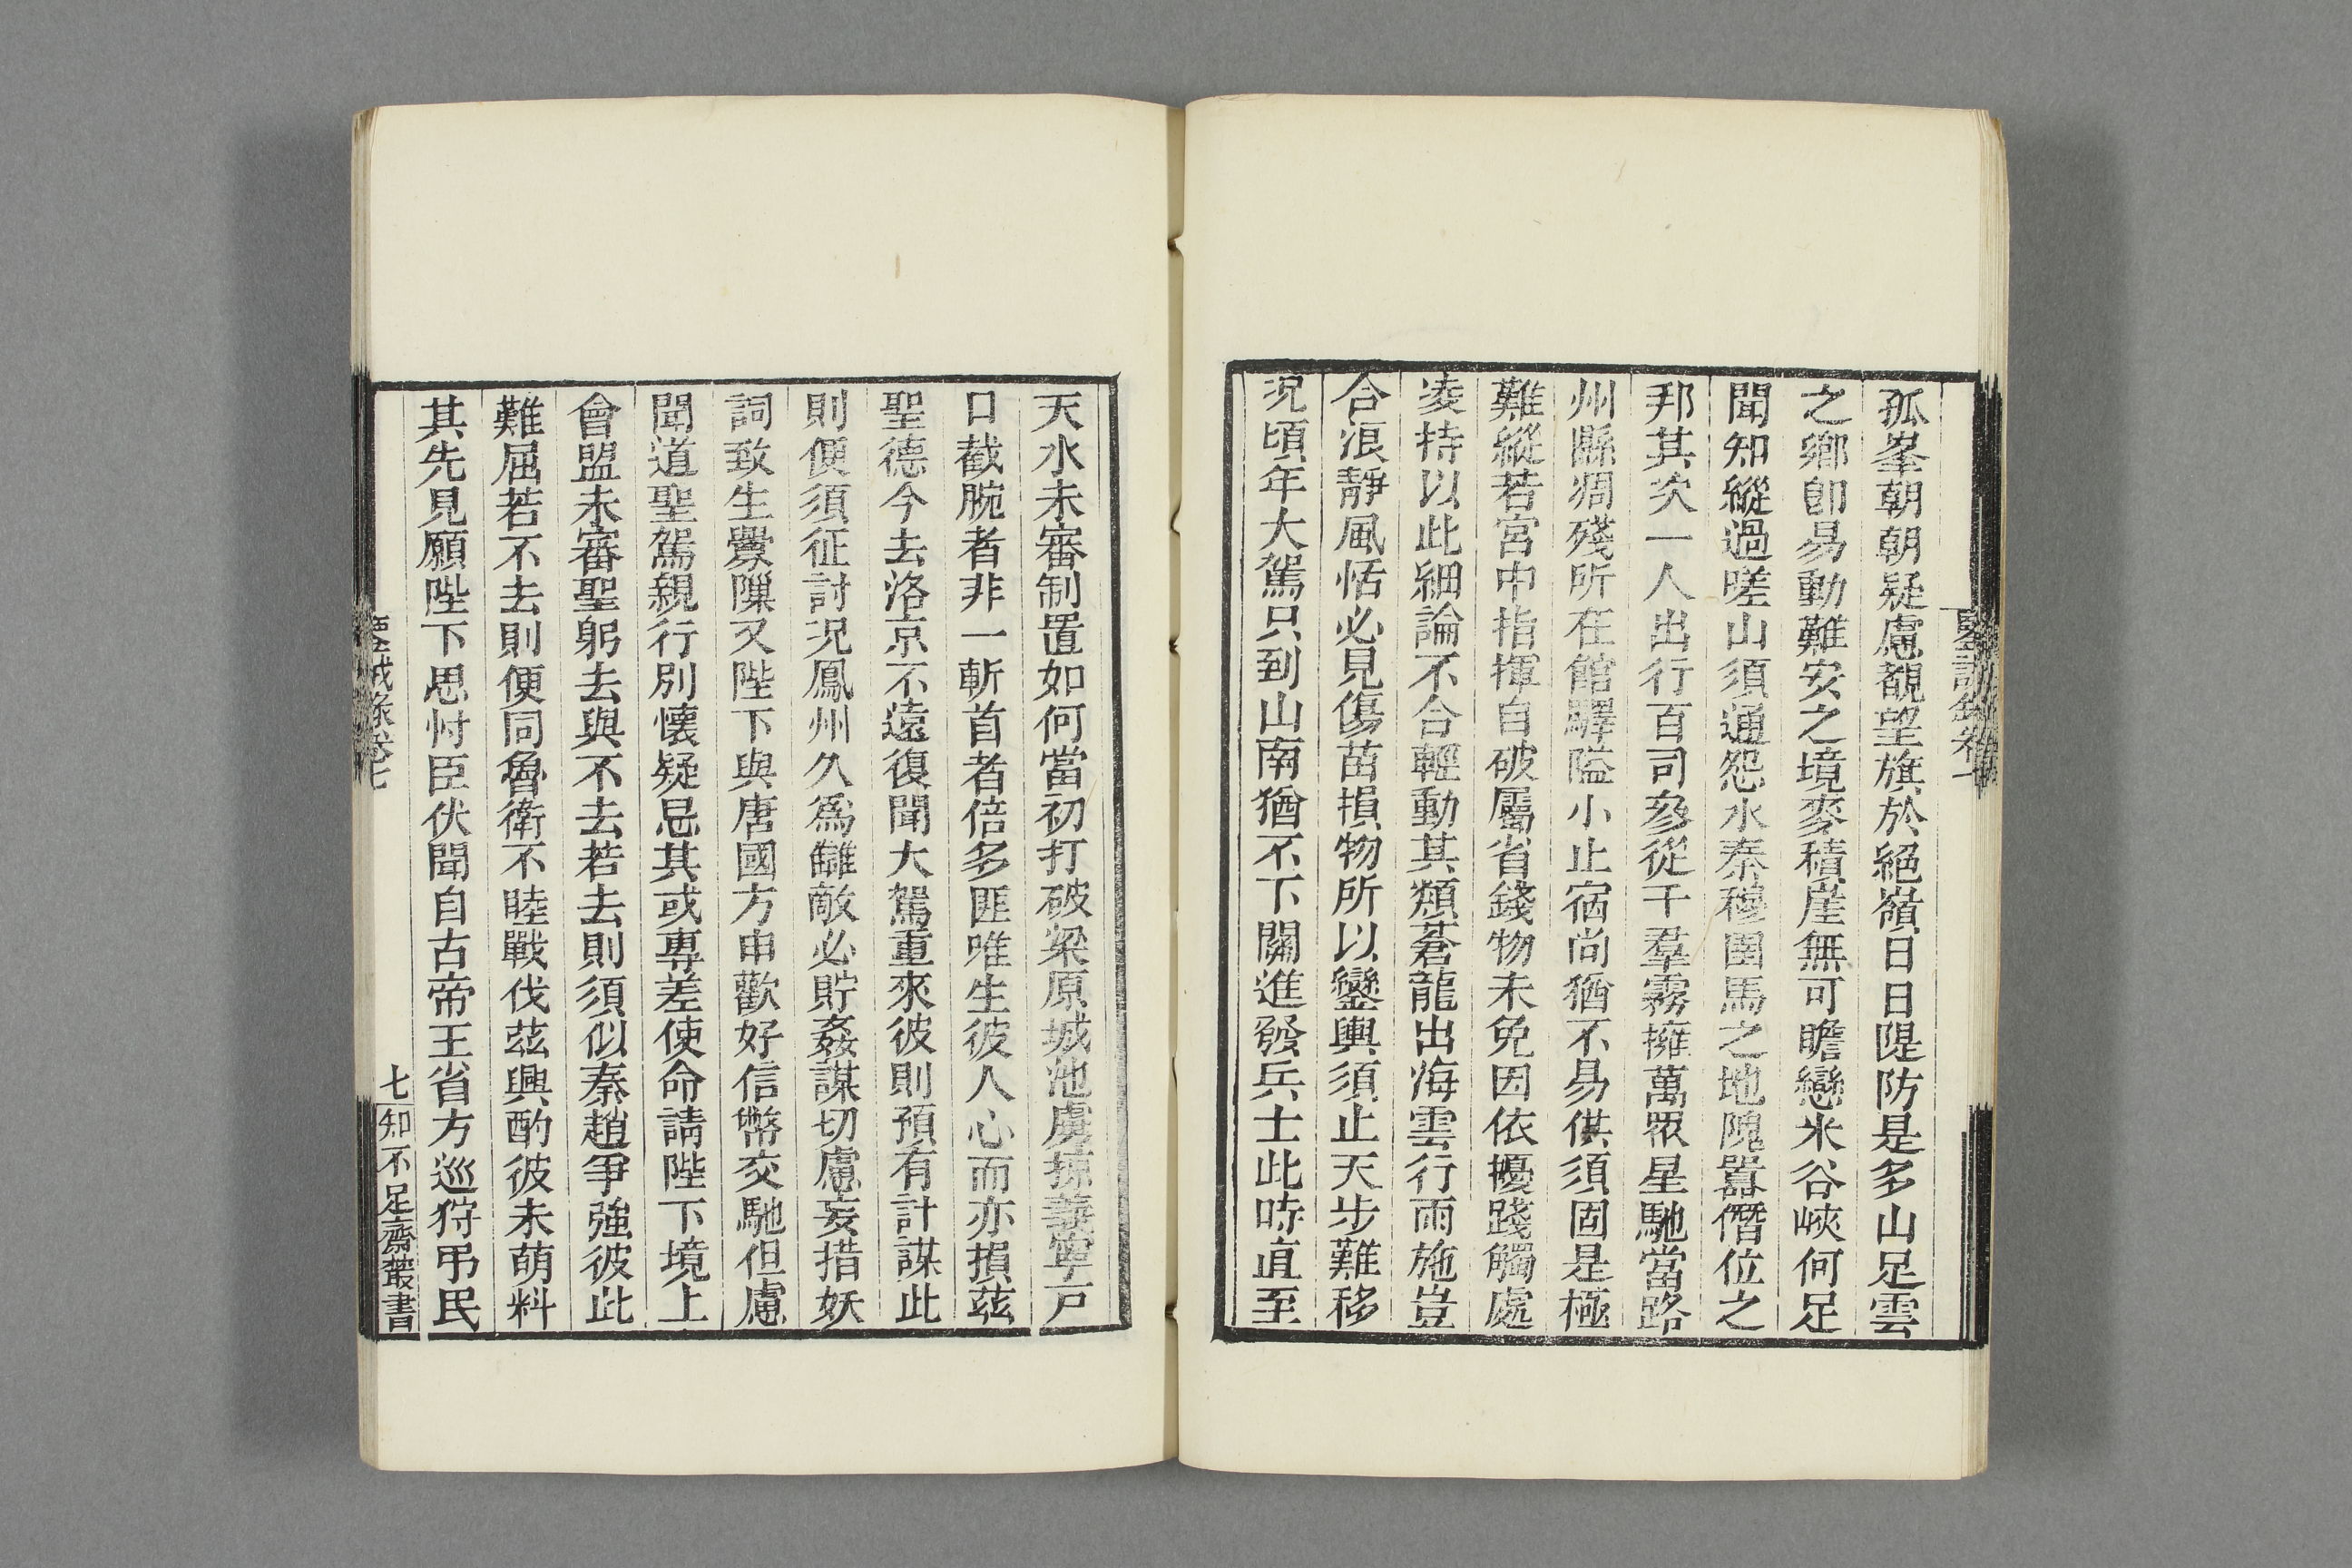 孤峯朝朝疑慮覩望旗於絕嶺日日隄防是多山足雲
之鄉卽易動難安之境麥積崖無可瞻戀米谷峽何足
聞知縱過嗟山須通怨水秦穆圉馬之地隗囂僭位之
邦其次一人出行百司參從千羣霧擁萬衆星馳當路
州縣凋殘所在館驛隘小止宿尚猶不易供須固是極
難縱若宮中指揮自破屬省錢物未免因依擾踐觸處
凌持以此細論不合輕動其類蒼龍出海雲行雨施豈
合浪靜風恬必見傷苗損物所以鑾輿須止天步難移
況頃年大駕只到山南猶不下關進發兵士此時直至
天水未審制置如何當初打破梁原城池虜掠義寧戸
口截腕者非一斬首者倍多匪唯生彼人心而亦損茲
聖德今去洛京不遠復聞大駕重來彼則預有計謀此
則便須征討況鳳州久爲讎敵必貯姦謀切慮妄措妖
詞致生釁隟又陛下與唐國方申歡好信幣交馳但慮
聞道聖駕親行別懷疑忌其或專差使命請陛下境上
會盟未審聖躬去與不去若去則須似秦趙爭強彼此
難屈若不去則便同魯衛不睦戰伐茲興酌彼未萌料
其先見願陛下思忖臣伏聞自古帝王省方巡狩弔民
鑒戒錄卷七
七
知不足齋叢書